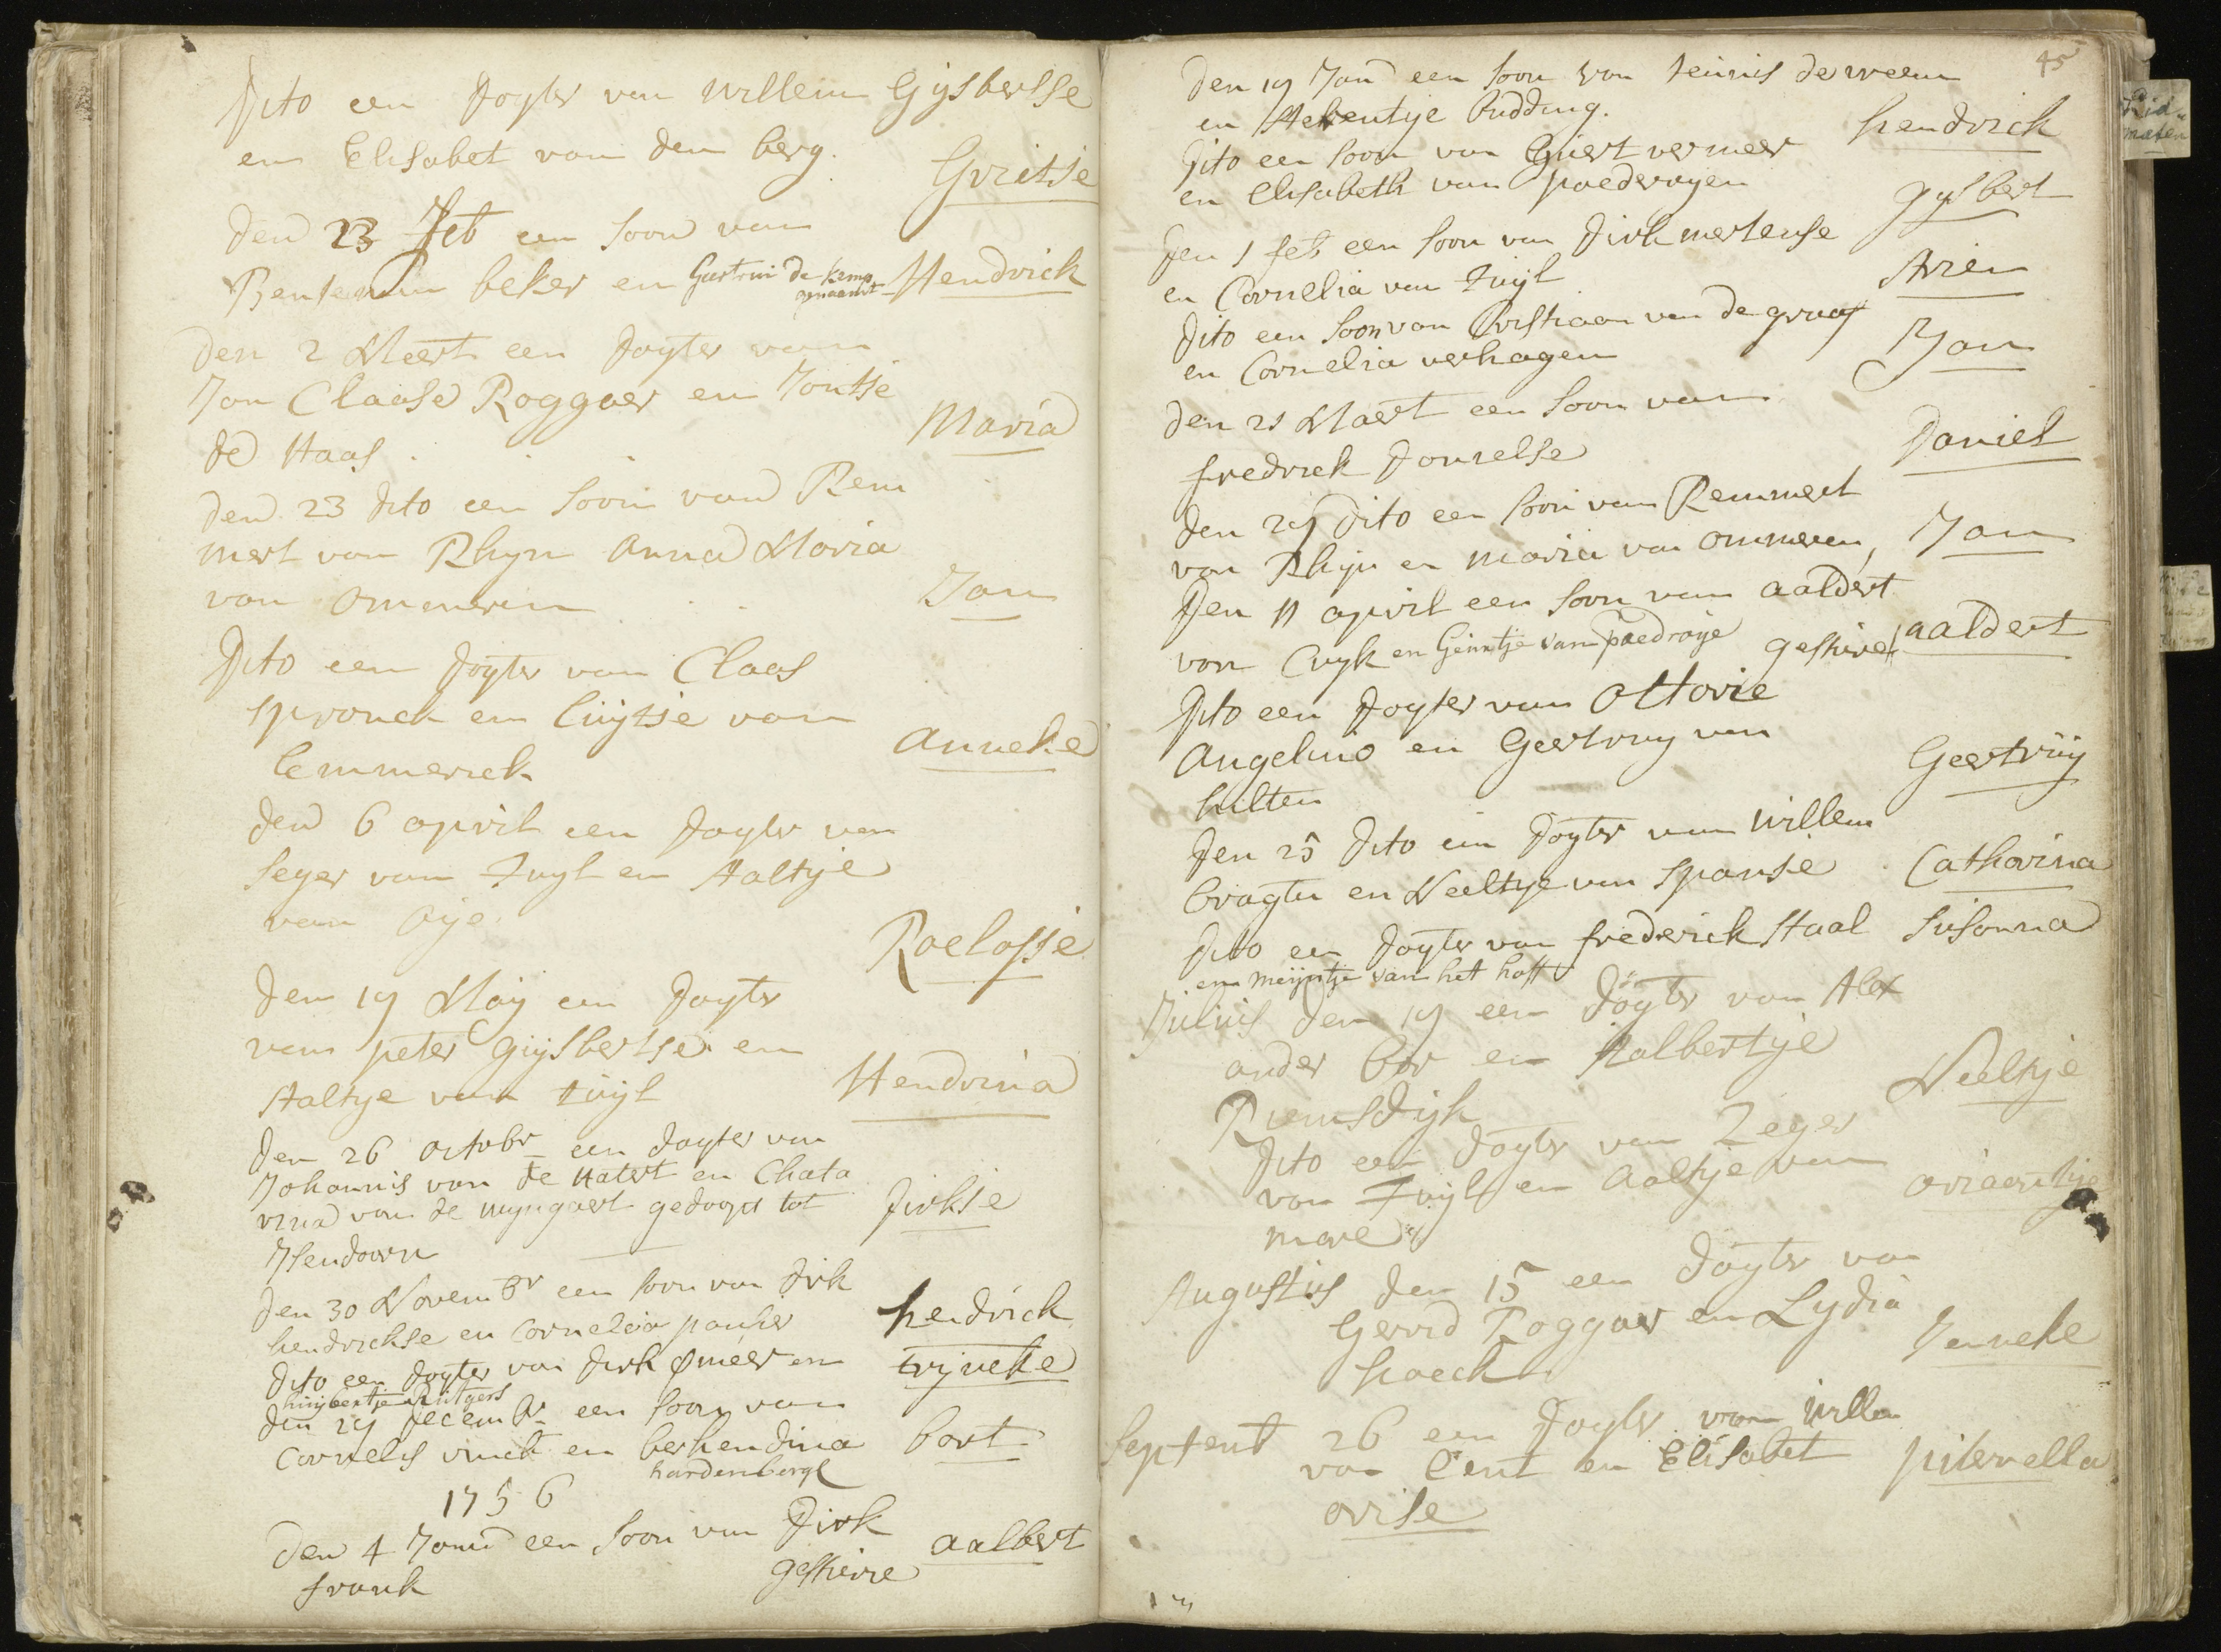 Dito een Dogter van willem Gijsbertse
en Elisabet van den berg.
Gritsie
Den 23 Feb een soon van
Benjemin beker en Geertrui de kemp Hendrick
genaemt
Den 2 Meert een Dogter van
Jan Claase Roggaer en Jantse
de Haas.
Maria
Den 23 dito een soon van Rem
mert van Rhijn Anna Maria
van Ommeren
Jan
Dito een Dogter van Claas
spronck en Cuijtsie van
Emmerick
Anneke
Den 6 april een Dogter van
Seger van Zuyl en Aaltje
van Oije.
Roelofse
Den 19 Maij een Dogter
van peter gijsbertse en
Aaltje van zuijl
Hendrina
Den 26 octobr een dogter van
Johannis van de Hatert en Chata
rina van de wyngaert gedoopt tot
Jsendoorn
Dirkse
Den 30 Novembr een soon van Dirk
hendrickse en Cornelia panhis
hendrick
Dito een Dogter van Dirk ømeer en
huijbertje Rutgers
trijneke
Den 29 Decembr een soon van
Cornelis vinck en berhendina
hardenbergh
bart
1756
Den 4 Janu een soon van Dirk
frank
gesturve
aalbert
45
Den 19 Jan een soon van teunis de weem
en Aeltentije budding.
hendrick
Dito een soon van Guert vermeer
en Elisabeth van poederoyen
gijsbert
Den 1 feb een soon van Dirk mertense
en Cornelia van Zuijl
Arien
Dito een soon van Cristiaan van de graaf
en Cornelia verhagen
Jan
Den 21 Maert een soon van
fredrick Donselse
Daniel
Den 29 Dito een soon van Remmert
van Rhijn en Maria van ommeren,
Jan
Den 11 april een soon van aaldert
van Cuyk en Geurtje van paedroije gesturve aaldert
Dito een Dogter van Ottovie
Angelino en Geertruy van
hulten
Geertruij
Den 25 Dito een Dogter van willem
bragter en Neeltije van spansie
Catharina
Dito een Dogter van frederick Staal Susanna
en meijntje van het hoff
Julius den 19 een Dogter van Alex
ander bor en Aalbertije
Riemsdijk
Neeltje
Dito een Dogter van Zeger
van Zuijl en Aaltje van
mare
ariaentije
Augustus den 15 een Dogter van
Gerrid Roggaer en Lydia
hoeck
Jenneke
Septemb 26 een Dogter van Wille
van Cent en Elisabet
orise
piternella